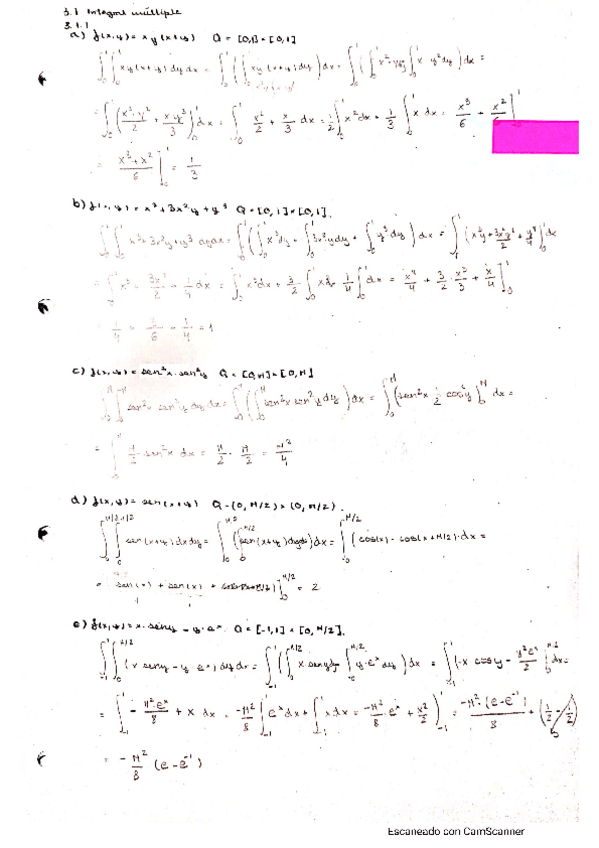 3.1 Integral múltiple
3.1.1
a) f(x,y) = xy(x+y) Q = [0,1]×[0,1]
∫₀¹∫₀¹ xy(x+y) dy dx = ∫₀¹ (∫₀¹ xy(x+y) dy) dx = ∫₀¹ (∫₀¹ x²y dy ∫₀¹ x y² dy) dx =
= ∫₀¹ (x²·y²/2 + xy³/3)₀¹ dx = ∫₀¹ x²/2 + x/3 dx = 1/2 ∫₀¹ x² dx + 1/3 ∫₀¹ x dx = x³/6 + x²/6 ]₀¹
= x³+x²/6 ]₀¹ = 1/3
b) f(x,y) = x³+3x²y+y³ Q = [0,1]×[0,1].
∫₀¹∫₀¹ x³+3x²y+y³ dy dx = ∫₀¹ (∫₀¹ x³dy + ∫₀¹ 3x²y dy + ∫₀¹ y³ dy) dx = ∫₀¹ (x³y + 3x²y²/2 + y⁴/4)₀¹ dx
= ∫₀¹ x³ + 3x²/2 + 1/4 dx = ∫₀¹ x³dx + 3/2 ∫₀¹ x² dx 1/4 ∫₀¹ dx = x⁴/4 + 3/2 · x³/3 + x/4 ]₀¹
1/4 + 3/6 + 1/4 = 1
c) f(x,y) = sen²x·sen²y Q = [0,π]×[0,π]
∫∫ sen²x sen²y dy dx = ∫ (∫ sen²x sen²y dy) dx = ∫ (sen²x 1/2 cos²y)₀^π dx =
= ∫ π/2 · sen²x dx = π/2 · π/2 = π²/4
d) f(x,y) = sen(x+y) Q = (0,π/2)×(0,π/2).
∫∫ sen(x+y) dx dy = ∫ (∫ sen(x+y) dy) dx = ∫₀^π/2 (cos(x) - cos(x+π/2)) dx =
= sen(x) + sen(x) ]₀^π/2 = 2
e) f(x,y) = x·seny - y·eˣ Q = [-1,1]×[0,π/2].
∫₋₁¹∫₀^π/2 (x seny - y eˣ) dy dx = ∫₋₁¹ (∫₀^π/2 x seny dy ∫₀^π/2 y·eˣ dy) dx = ∫₋₁¹ (-x cosy - y²eˣ/2)₀^π/2 dx =
= ∫₋₁¹ - π²·eˣ/8 + x dx = -π²/8 ∫₋₁¹ eˣ dx + ∫₋₁¹ x dx = -π²/8 · eˣ + x²/2 )₋₁¹ = -π²·(e-e⁻¹)/8 + (1/2 - 1/2)
= -π²/8 (e-e⁻¹)
Escaneado con CamScanner